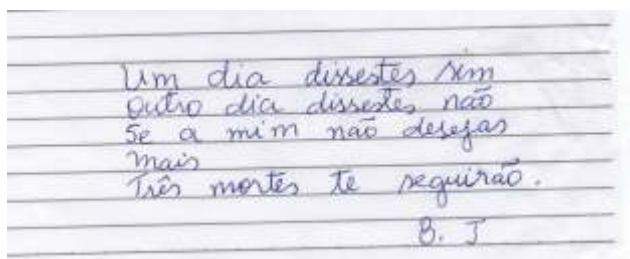 Um dia dissestes sim
outro dia dissestes não
Se a mim não desejas
mais
Três mortes te seguirão.
B. J